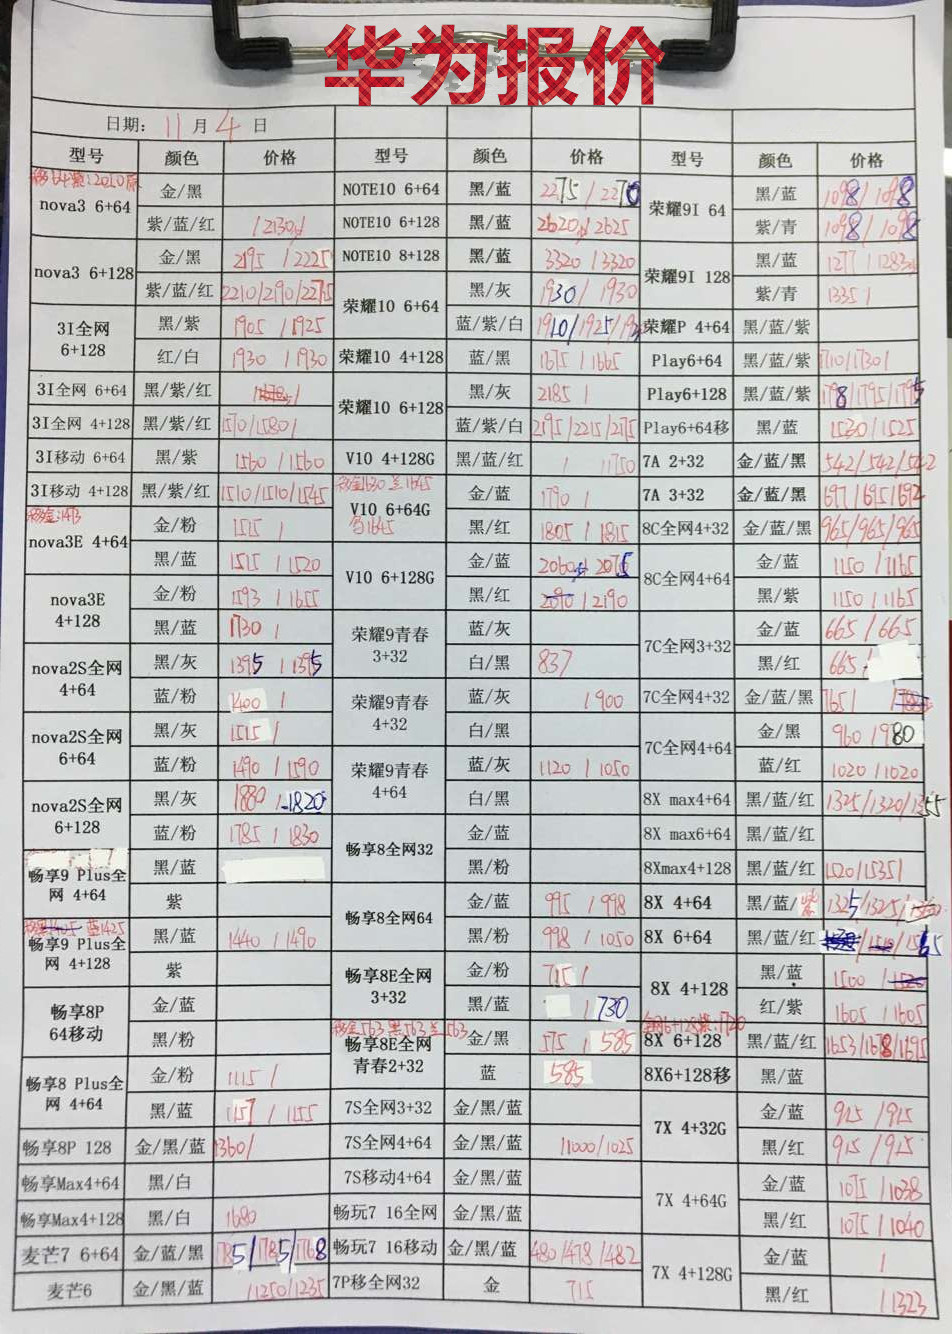 华为报价
日期： 11 月 4 日
型号 颜色 价格 型号 颜色 价格 型号 颜色 价格
nova3 6+64 金/黑
紫/蓝/红 /2130
nova3 6+128 金/黑 2195 /2225
紫/蓝/红 2210/2190/2275
3I全网 6+128 黑/紫 1905 /1925
红/白 1930 /1930
3I全网 6+64 黑/紫/红
3I全网 4+128 黑/紫/红 1570/1580/
3I移动 6+64 黑/紫 1560 /1560
3I移动 4+128 黑/紫/红 1510/1510/1545
nova3E 4+64 金/粉 1515 /
黑/蓝 1515 /1520
nova3E 4+128 金/粉 1593 /1655
黑/蓝 1730 /
nova2S全网 4+64 黑/灰 1395 /1395
蓝/粉 1400 /
nova2S全网 6+64 黑/灰 1515 /
蓝/粉 1490 /1590
nova2S全网 6+128 黑/灰 1880 /1820
蓝/粉 1785 /1830
畅享9 Plus全网 4+64 黑/蓝
紫
蓝1425
畅享9 Plus全网 4+128 黑/蓝 1440 /1490
紫
畅享8P 64移动 金/蓝
黑/粉
畅享8 Plus全网 4+64 金/粉 1115 /
黑/蓝 1157 /1155
畅享8P 128 金/黑/蓝 1360/
畅享Max4+64 黑/白
畅享Max4+128 黑/白 1680
麦芒7 6+64 金/蓝/黑 1785/1785/1768
麦芒6 金/黑/蓝 /1250/1235
NOTE10 6+64 黑/蓝 2275 /2270
NOTE10 6+128 黑/蓝 2620 /2625
NOTE10 8+128 黑/蓝 3320 /3320
荣耀10 6+64 黑/灰 1930/ 1930
蓝/紫/白 1910/1925/
荣耀10 4+128 蓝/黑 1675 /1665
荣耀10 6+128 黑/灰 2185 /
蓝/紫/白 2195/2215/2175
V10 4+128G 黑/蓝/红 / 1750
V10 6+64G 金/蓝 1790 /
黑/红 1805 /1815
V10 6+128G 金/蓝 2060 /2075
黑/红 2090 /2190
荣耀9青春 3+32 蓝/灰
白/黑 837
荣耀9青春 4+32 蓝/灰 /900
白/黑
荣耀9青春 4+64 蓝/灰 1120 /1050
白/黑
畅享8全网32 金/蓝
黑/粉
畅享8全网64 金/蓝 995 /998
黑/粉 998 /1050
畅享8E全网 3+32 金/粉 715 /
黑/蓝 /730
移金563 黑563 蓝563
畅享8E全网 青春2+32 金/黑 575 /585
蓝 585
7S全网3+32 金/黑/蓝
7S全网4+64 金/黑/蓝 /1000/1025
7S移动4+64 金/黑/蓝
畅玩7 16全网 金/黑/蓝
畅玩7 16移动 金/黑/蓝 480/478/482
7P移全网32 金 715
荣耀9I 64 黑/蓝 1098/1098
紫/青 1098/1098
荣耀9I 128 黑/蓝 1277 /1283
紫/青 1335 /
荣耀P 4+64 黑/蓝/紫
Play6+64 黑/蓝/紫 1710/1730/
Play6+128 黑/蓝/紫 1798/1795/1795
Play6+64移 黑/蓝 1530/1525
7A 2+32 金/蓝/黑 542/542/542
7A 3+32 金/蓝/黑 697/695/692
8C全网4+32 金/蓝/黑 965/965/965
8C全网4+64 金/蓝 1150 /1165
黑/紫 1150 /1165
7C全网3+32 金/蓝 665 /665
黑/红 665 /
7C全网4+32 金/蓝/黑 765/
7C全网4+64 金/黑 960 /980
蓝/红 1020 /1020
8X max4+64 黑/蓝/红 1325/1320/1355
8X max6+64 黑/蓝/红
8Xmax4+128 黑/蓝/红 1520/1535/
8X 4+64 黑/蓝/紫 1325/1325/
8X 6+64 黑/蓝/红 /1510/1565
8X 4+128 黑/蓝 1500
红/紫 1605 /1605
全网6+128紫:1720
8X 6+128 黑/蓝/红 1653/1678/1695
8X6+128移 黑/蓝
7X 4+32G 金/蓝 915 /915
黑/红 915 /915
7X 4+64G 金/蓝 1075 /1038
黑/红 1075 /1040
7X 4+128G 金/蓝 /
黑/红 /1323